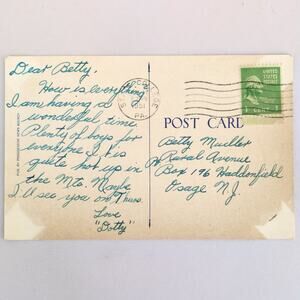 Dear Betty,
How is everything
I am having a
wonderful time
Plenty of boys for
everyone. It is
quite hot up in
the Mts. Maybe
I'll see you on Thurs.
Love
"Dotty"
1951
PA.
UNITED STATES
POSTAGE
POST CARD
Betty Mueller
Rural Avenue
Box 196 Haddonfield
Osage N.J.